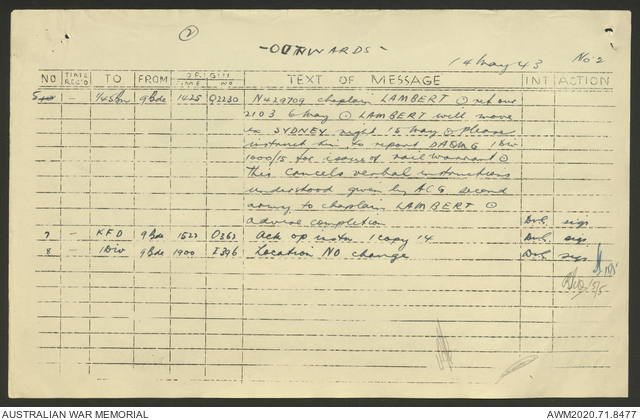 ②
- OUTWARDS -
14 May 43 No. 2
NO TIME REC'D TO FROM ORIGIN TIME NO TEXT OF MESSAGE INT ACTION
- 1/45 Bn 9 Bde 1425 Q2230 N429709 chaplain LAMBERT ⊙ ref our
2103 6 May ⊙ LAMBERT will move
ex SYDNEY night 15 May ⊙ Please
instruct him to report DAQMG 1 Div
1000/15 for issue of rail warrant ⊙
This cancels verbal instructions
understood given by ACG second
army to chaplain LAMBERT ⊙
advise completion sigs
7 - KFD 9 Bde 1527 O362 Ack op instn 1 copy 14 sigs
8 1 Div 9 Bde 1900 I396 Location NO change sigs
15/5
AUSTRALIAN WAR MEMORIAL AWM2020.71.8477